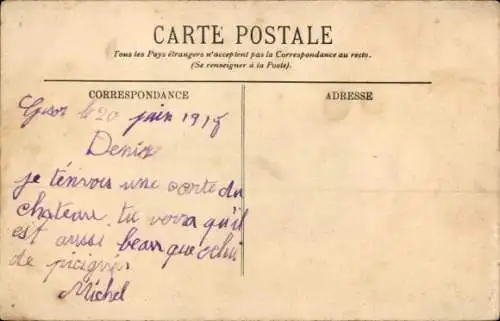 CARTE POSTALE
Tous les Pays étrangers n'acceptent pas la Correspondance au recto.
(Se renseigner à la Poste).
CORRESPONDANCE
ADRESSE
le 20 juin 191
Denise
je tenvois une carte du
chateau, tu verra qu'il
est aussi beau que celui
de
Michel